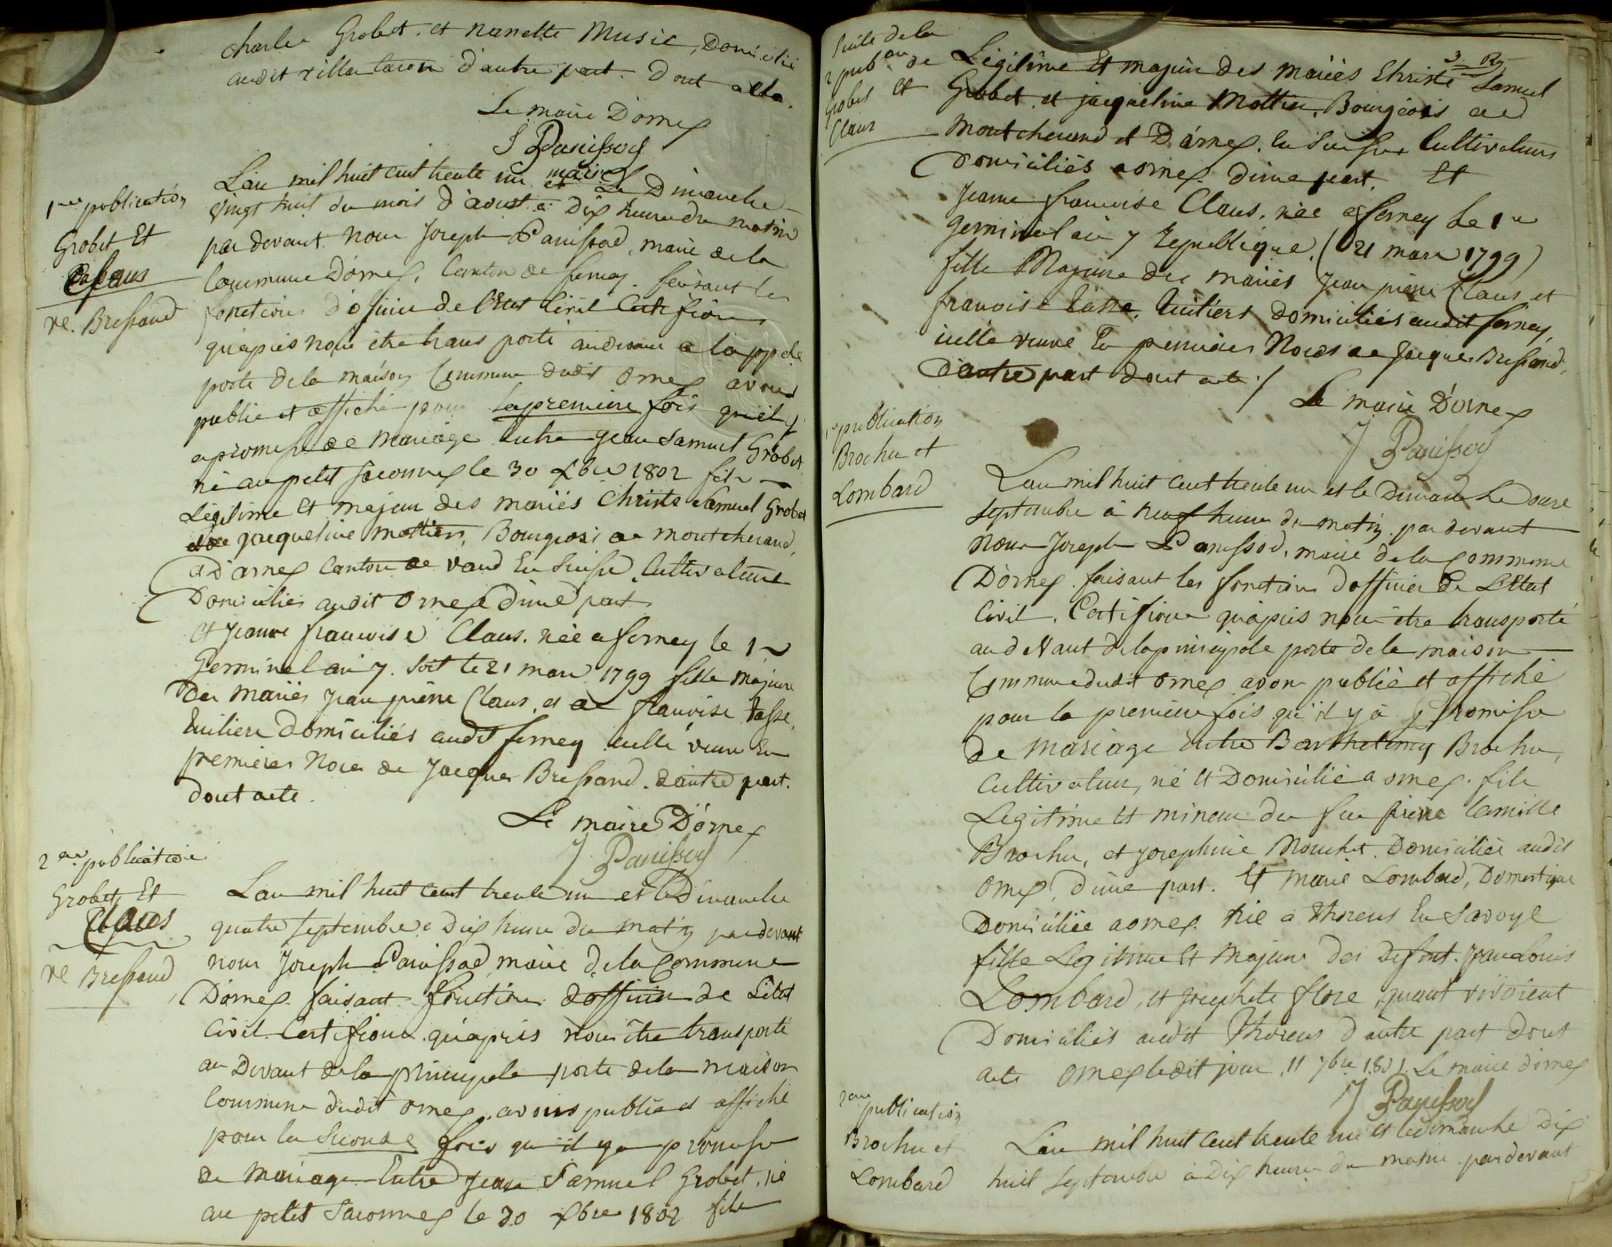 charles Grobet. et nanette Music, Domicilié
audit villa d'autre part. Dont acte.
Le maire D'ornex
J Panissod
1ere publication
Grobet Et
Claus
ve. Bressand
L'an mil huit cent trente un et le Dimanche
Vingt huit du mois d'aoust à Dix heure du matin
par devant nous Joseph Panissod, maire de la
Commune D'ornex, Canton de ferney. faisant les
fonctions d'oficier de l'Etat Civil Certifions
qu'après nous être trans porté audevant a la pple
porte de la maison Commune dudit Ornex avons
publié et affiché pour la premiere fois qu'il y
a promesse de Mariage Entre Jean Samuel Grobet
né au petit Saconnex le 30 Xbre 1802 fils
Légitime Et majeur des mariés Christe Samuel Grobet
et jacqueline mottier, Bourgeois de montcherand,
& D'arnex Canton de vaud En Suisse. Cultivateurs
Domiciliés audit Ornex D'une part
Et Jeanne francoise Claus. née a ferney le 1er
Germinal an 7. soit le 21 mars 1799 fille Majeure
Des Mariés Jean pierre Claus, et de francoise Tasse,
tuiliers domiciliés audit ferney icelle veuve En
premieres Noces de Jacques Bressand. d'autre part.
dont acte.
Le maire D'ornex
J Panissod
2eme publication
Grobet Et
Claus
ve Bressand
L'an mil huit cent trente un et le Dimanche
quatre septembre à Dix heure du matin par devant
nous Joseph Panissod maire de la Commune
D'ornex faisant fonctions d'officier de L'état
Civil Certifions qu'après nous être transporté
au Devant de la principale porte de la maison
Commune dudit ornex avons publié et affiché
pour la Seconde fois qu'il y a promesse
de Mariage Entre Jean Samuel Grobet. né
au petit Saconnex le 30 Xbre 1802 fils
Suite de la
2 pubon de
Grobet et
Claus
Légitime Et majeur des mariés Christe Samuel
Grobet et jacqueline Mottier, Bourgeois de
Montcherand et D'arnex. en Suisse Cultivateurs
Domiciliés a ornex d'une part. Et
Jeanne francoise Claus. née a ferney le 1er
Germinal an 7 Republique. (21 mars 1799)
fille Majeure des mariés Jean pierre Claus et
francoise Tasse. tuiliers domiciliés audit ferney,
icelle veuve En premières Noces de Jacques Bressand,
D'autre part dont acte /
Le maire D'ornex
J Panissod
1re publication
Brochu et
Lombard
L'an mil huit cent trente un et le Dimanche Onze
Septembre à Neuf heure du matin, par devant
Nous Joseph Panissod, maire de la Commune
D'ornex faisant les fonctions d'officier De L'Etat
Civil. Certifions qu'après nous être transporté
au devant de la principale porte de la maison
Commune dudit Ornex avons publié et affiché
pour la premiere fois qu'il y a promesse
de mariage entre Barthelemy Brochu,
Cultivateur, né Et Domicilié a ornex. fils
Légitime Et mineur du feu pierre Camille
Brochu, et Josephine Mouchet Domiciliée audit
Ornex, d'une part. Et marie Lombard, Domestique
Domiciliée a ornex. née à Thorens En Savoye
fille Legitime Et Majeure des Defunt. Jean Louis
Lombard, et Josephte flore, quand vivoient
Domiciliés audit Thorens d'autre part Dont
acte Ornex ledit jour, 11 7bre 1831. Le maire d'ornex
J Panissod
2eme publication
Brochu et
Lombard
L'an mil huit cent trente un et le dimanche Dix
huit septembre à Dix heures du matin par devant